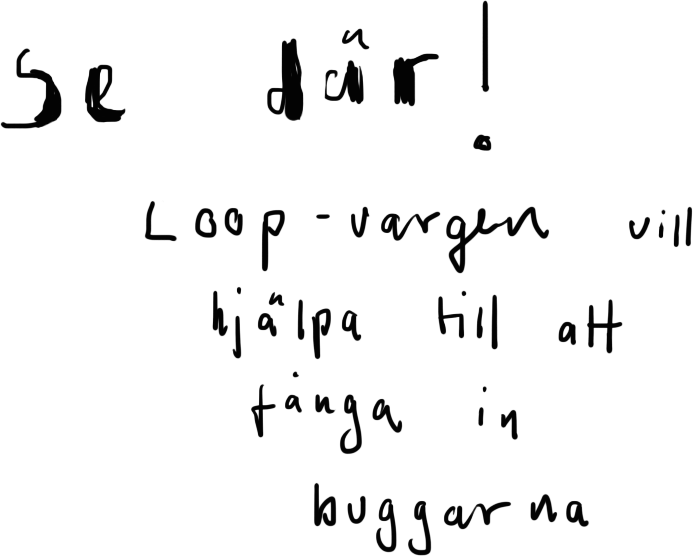 Se där!
Loop-vargen vill
hjälpa till att
fånga in
buggarna